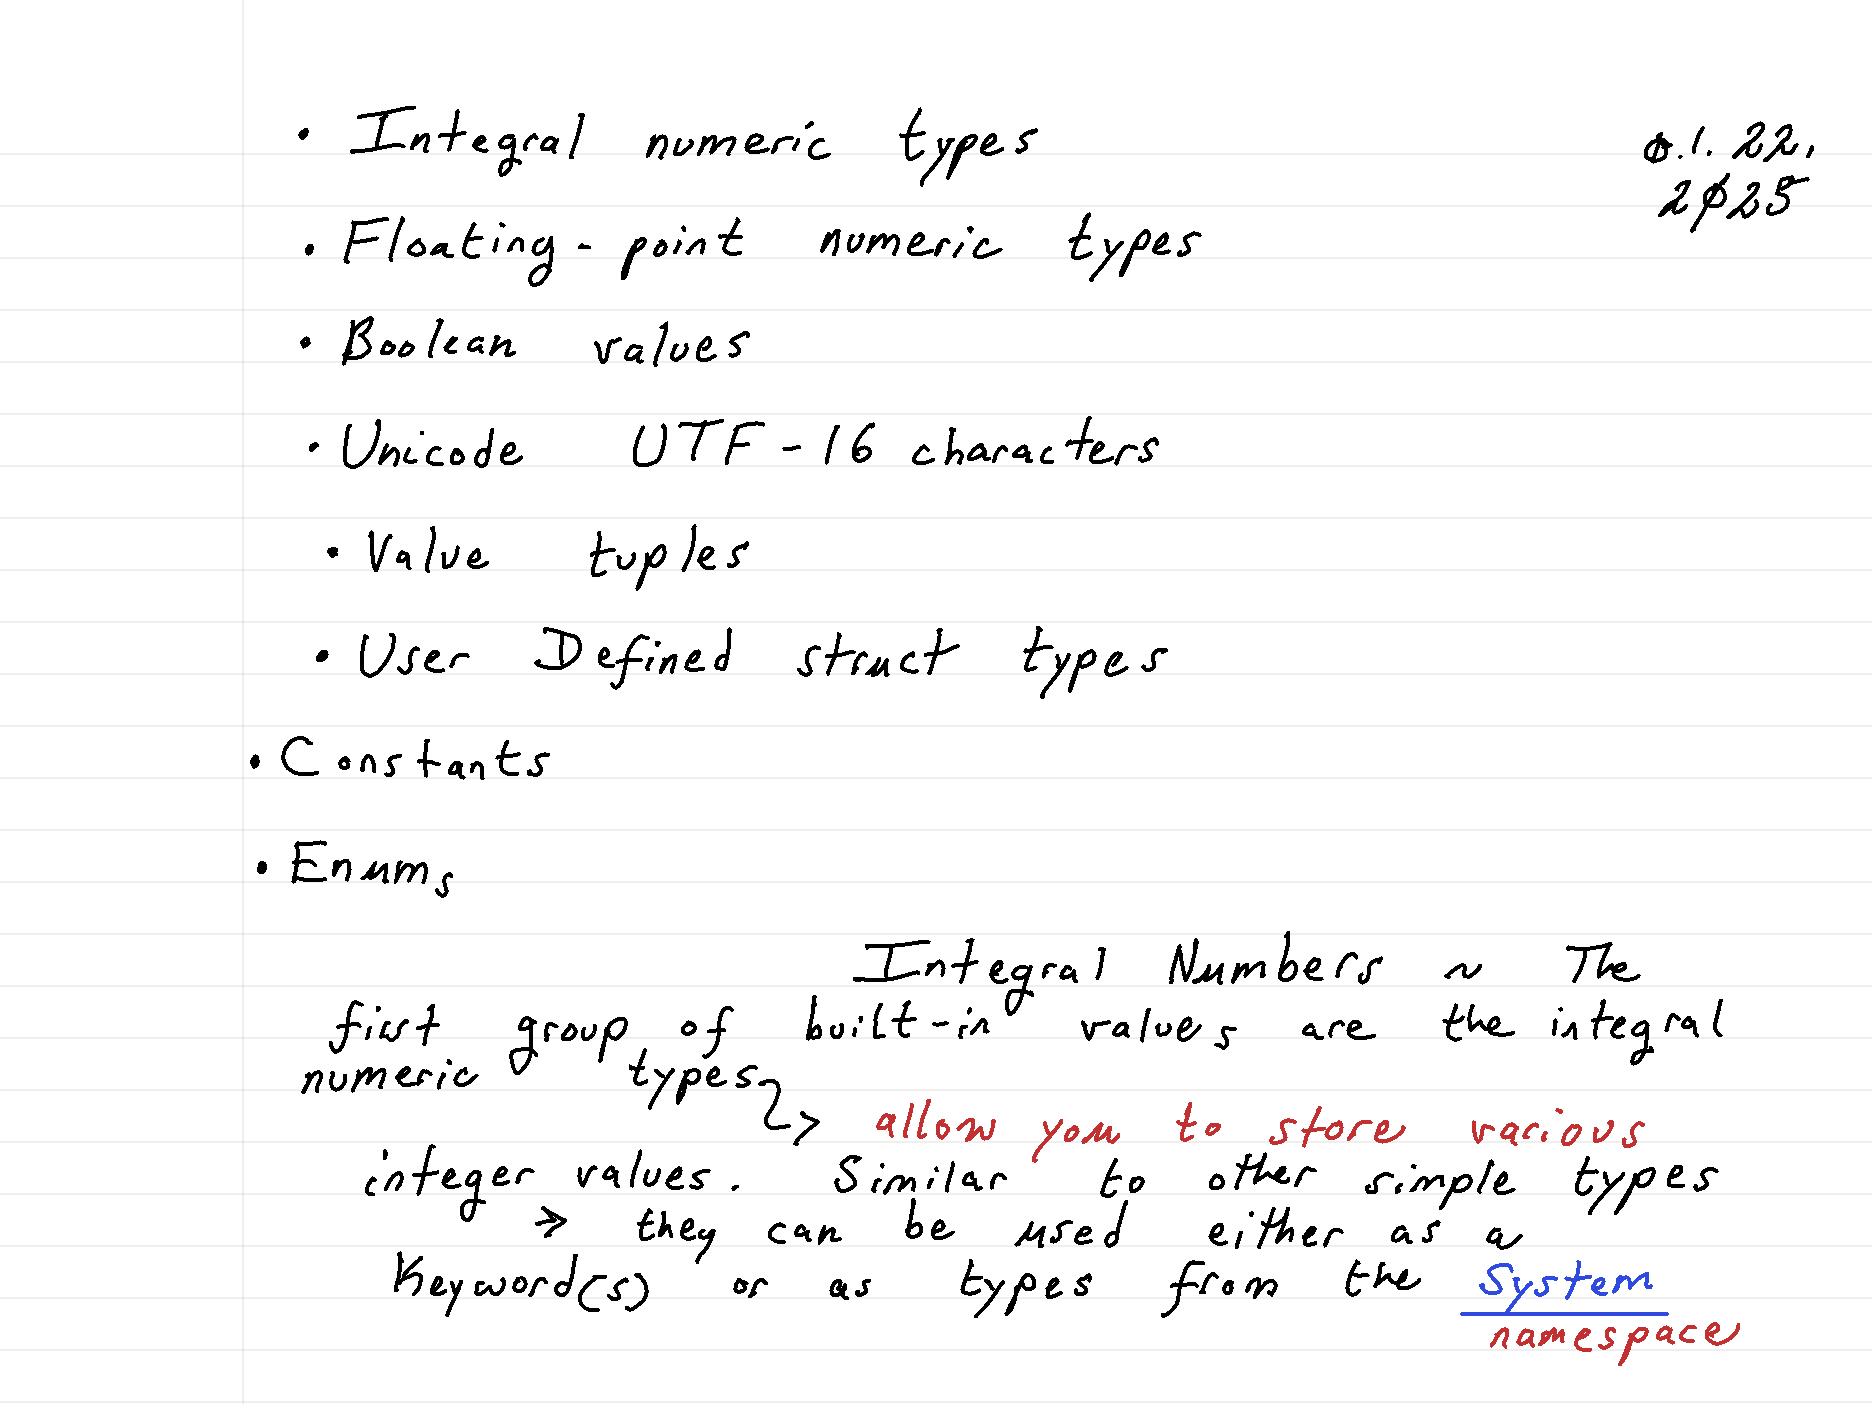 • Integral numeric types
ø.1.22,
2ø25
• Floating-point numeric types
• Boolean values
• Unicode UTF-16 characters
• Value tuples
• User Defined struct types
• Constants
• Enums
Integral Numbers ~ The
first group of built-in values are the integral
numeric types
↳> allow you to store various
integer values. Similar to other simple types
⇒ they can be used either as a
Keyword(s) or as types from the System
namespace